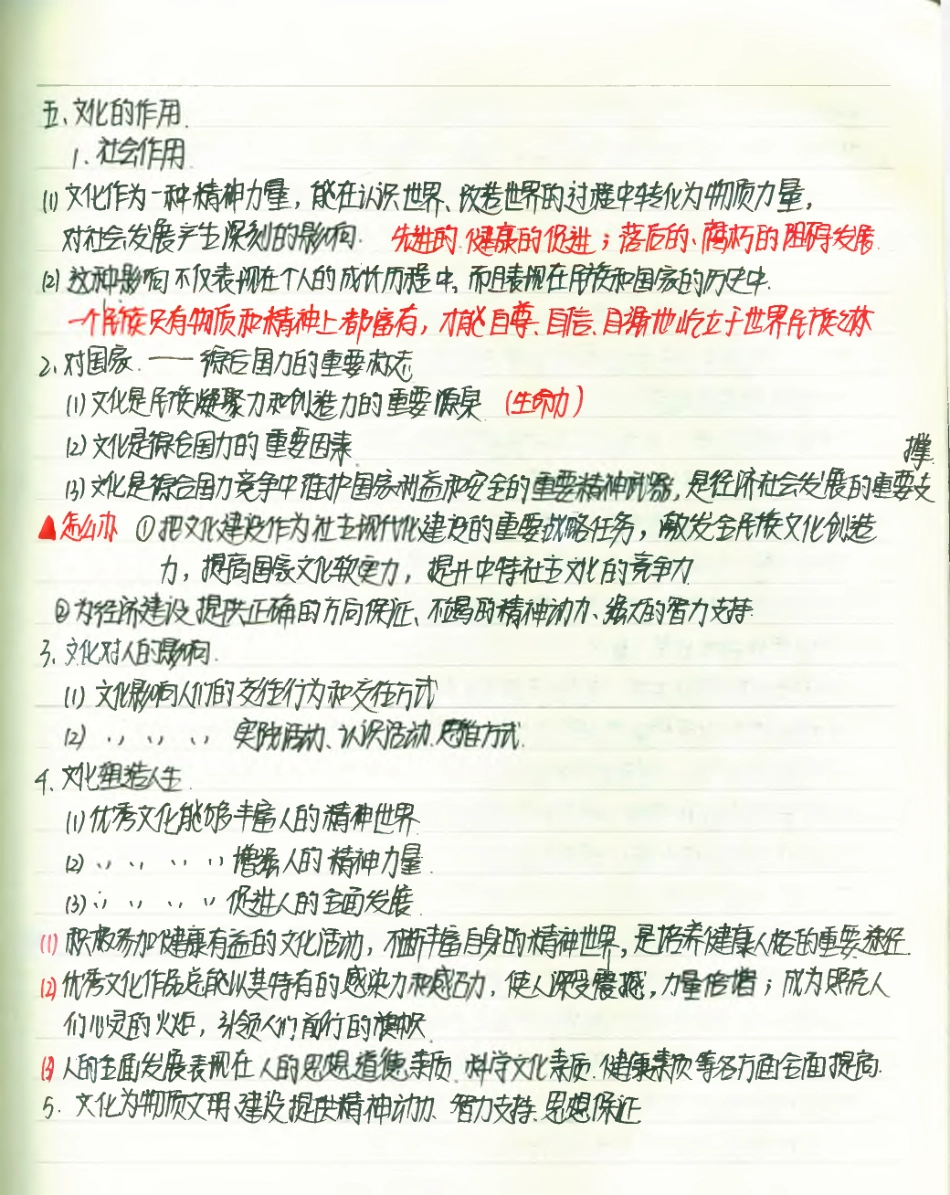 五、文化的作用.
1. 社会作用.
(1) 文化作为一种精神力量，能在认识世界、改造世界的过程中转化为物质力量，
对社会发展产生深刻的影响. 先进的、健康的促进；落后的、腐朽的阻碍发展.
(2) 这种影响不仅表现在个人的成长历程中，而且表现在民族和国家的历史中.
一个民族只有物质和精神上都富有，才能自尊、自信、自强地屹立于世界民族之林
2. 对国家. —— 综合国力的重要标志
(1) 文化是民族凝聚力和创造力的重要源泉 (生命力)
(2) 文化是综合国力的重要因素
(3) 文化是综合国力竞争中维护国家利益和安全的重要精神武器，是经济社会发展的重要支撑.
▲怎么办 ①把文化建设作为社主现代化建设的重要战略任务，激发全民族文化创造
力，提高国家文化软实力，提升中特社主文化的竞争力
②为经济建设提供正确的方向保证、不竭的精神动力、强大的智力支持.
3. 文化对人的影响.
(1) 文化影响人们的交往行为和交往方式
(2) 〃 〃 〃 实践活动、认识活动、思维方式.
4. 文化塑造人生.
(1) 优秀文化能够丰富人的精神世界.
(2) 〃 〃 〃 〃 增强人的精神力量.
(3) 〃 〃 〃 〃 促进人的全面发展.
(1) 积极参加健康有益的文化活动，不断丰富自身的精神世界，是培养健康人格的重要途径.
(2) 优秀文化作品总能以其特有的感染力和感召力，使人深受震撼，力量倍增；成为照亮人
们心灵的火炬，引领人们前行的旗帜.
(3) 人的全面发展表现在人的思想道德素质、科学文化素质、健康素质等各方面全面提高.
5. 文化为物质文明建设提供精神动力、智力支持、思想保证